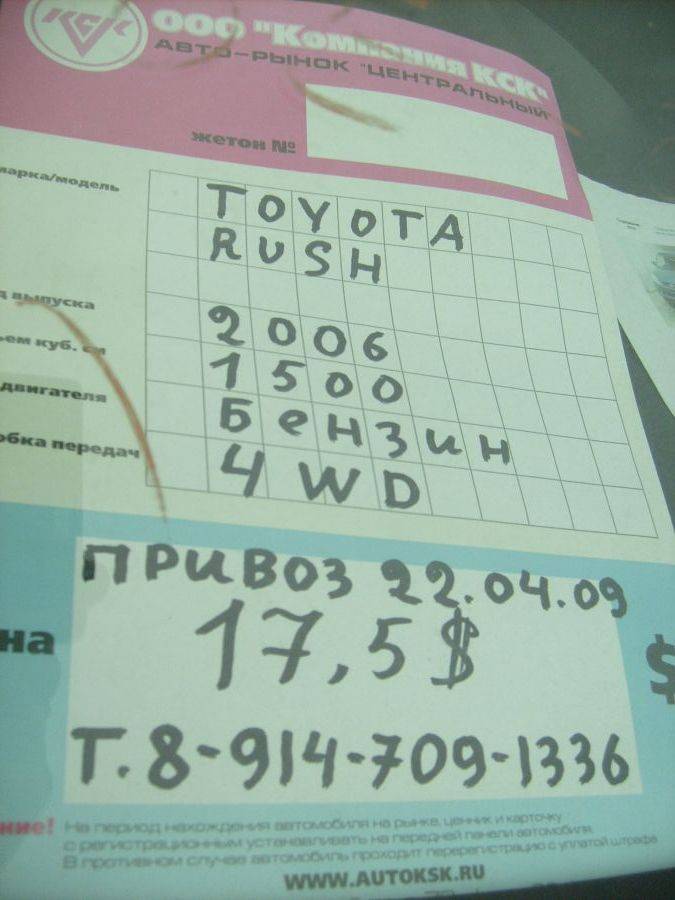 КСК
ООО "Компания КСК"
АВТО-РЫНОК "ЦЕНТРАЛЬНЫЙ"
жетон №
марка/модель
TOYOTA
RUSH
выпуска
2006
куб. см
1500
двигателя
Бензин
передач
4WD
ПРИВОЗ 22.04.09
на
17,5$
$
Т. 8-914-709-1336
ние! На период нахождения автомобиля на рынке, ценник и карточку
с регистрационным устанавливать на передней панели автомобиля.
В противном случае автомобиль проходит перерегистрацию с уплатой штрафа
WWW.AUTOKSK.RU